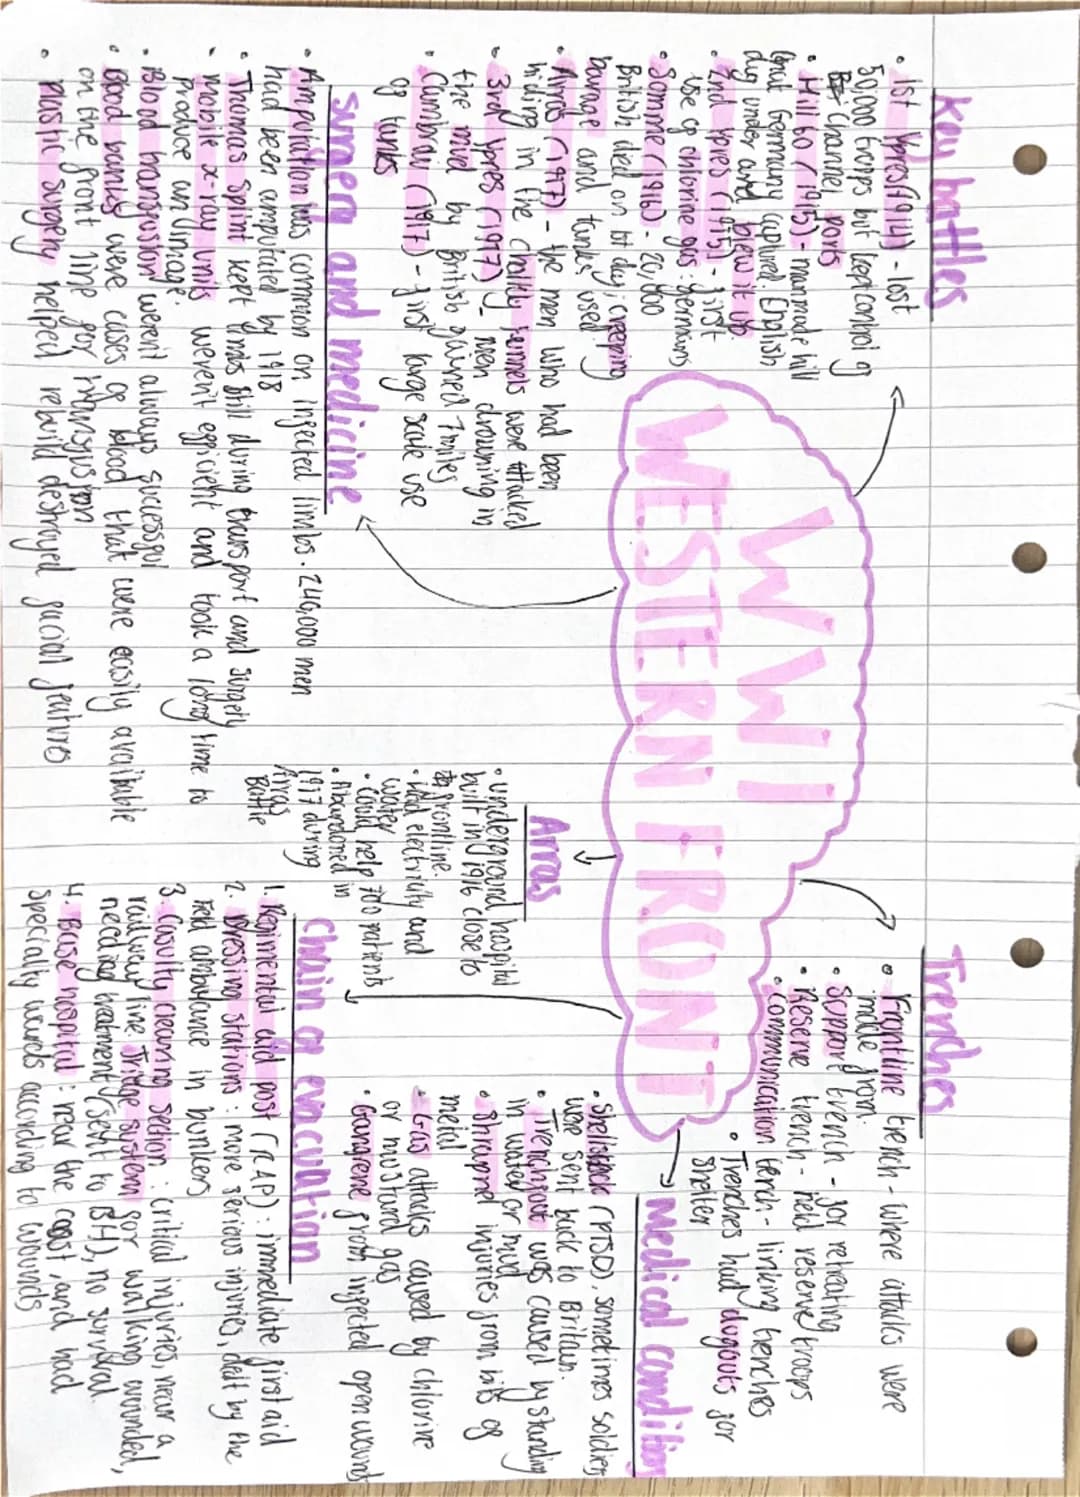 WW1
WESTERN FRONT
Key battles
• 1st Ypres (1914) - lost
50,000 troops but kept control of
channel ports
• Hill 60 (1915) - manmade hill
that Germany captured. English
dug under and blew it up
• 2nd Ypres (1915) - first
use of chlorine gas: Germans
• Somme (1916) - 20,000
British died on 1st day; creeping
barage and tanks used
• Arras (1917) - the men who had been
hiding in the chalky tunnels were attacked
• 3rd Ypres (1917) - men drowning in
the mud by British gained 7 miles
• Cambrai (1917) - first large scale use
of tanks
surgery and medicine
• Amputation was common on infected limbs. 240,000 men
had been amputated by 1918
• Thomas Splint kept limbs still during transport and surgery
• mobile x-ray units weren't efficient and took a long time to
produce an image
• Blood transfusion weren't always successful
• Blood banks were cases of blood that were easily available
on the front line for
• Plastic surgery helped rebuild destroyed facial features
Arras
• underground hospital
built in 1916 close to
frontline.
• Had electricity and
water
• Could help 700 patients
• Abandoned in
1917 during
Arras
Battle
Trenches
• Frontline trench - where attacks were
made from.
• Support trench - for retreating
• Reserve trench - held reserve troops
• Communication trench - linking trenches
• Trenches had dugouts for
shelter
medical conditions
• Shellshock (PTSD), sometimes soldiers
were sent back to Britain.
• Trenchfoot was caused by standing
in water or mud
• Shrapnel injuries from bits of
metal
• Gas attacks caused by chlorine
or mustard gas
• Gangrene from infected open wounds
chain of evacuation
1. Regimental aid post (RAP): immediate first aid
2. Dressing stations: more serious injuries, dealt by the
field ambulance in bunkers
3. Casualty clearing section: critical injuries, near a
railway line. Triage system for walking wounded,
needing treatment (sent to BH), no survival
4. Base hospital: near the coast, and had
specialty wards according to wounds